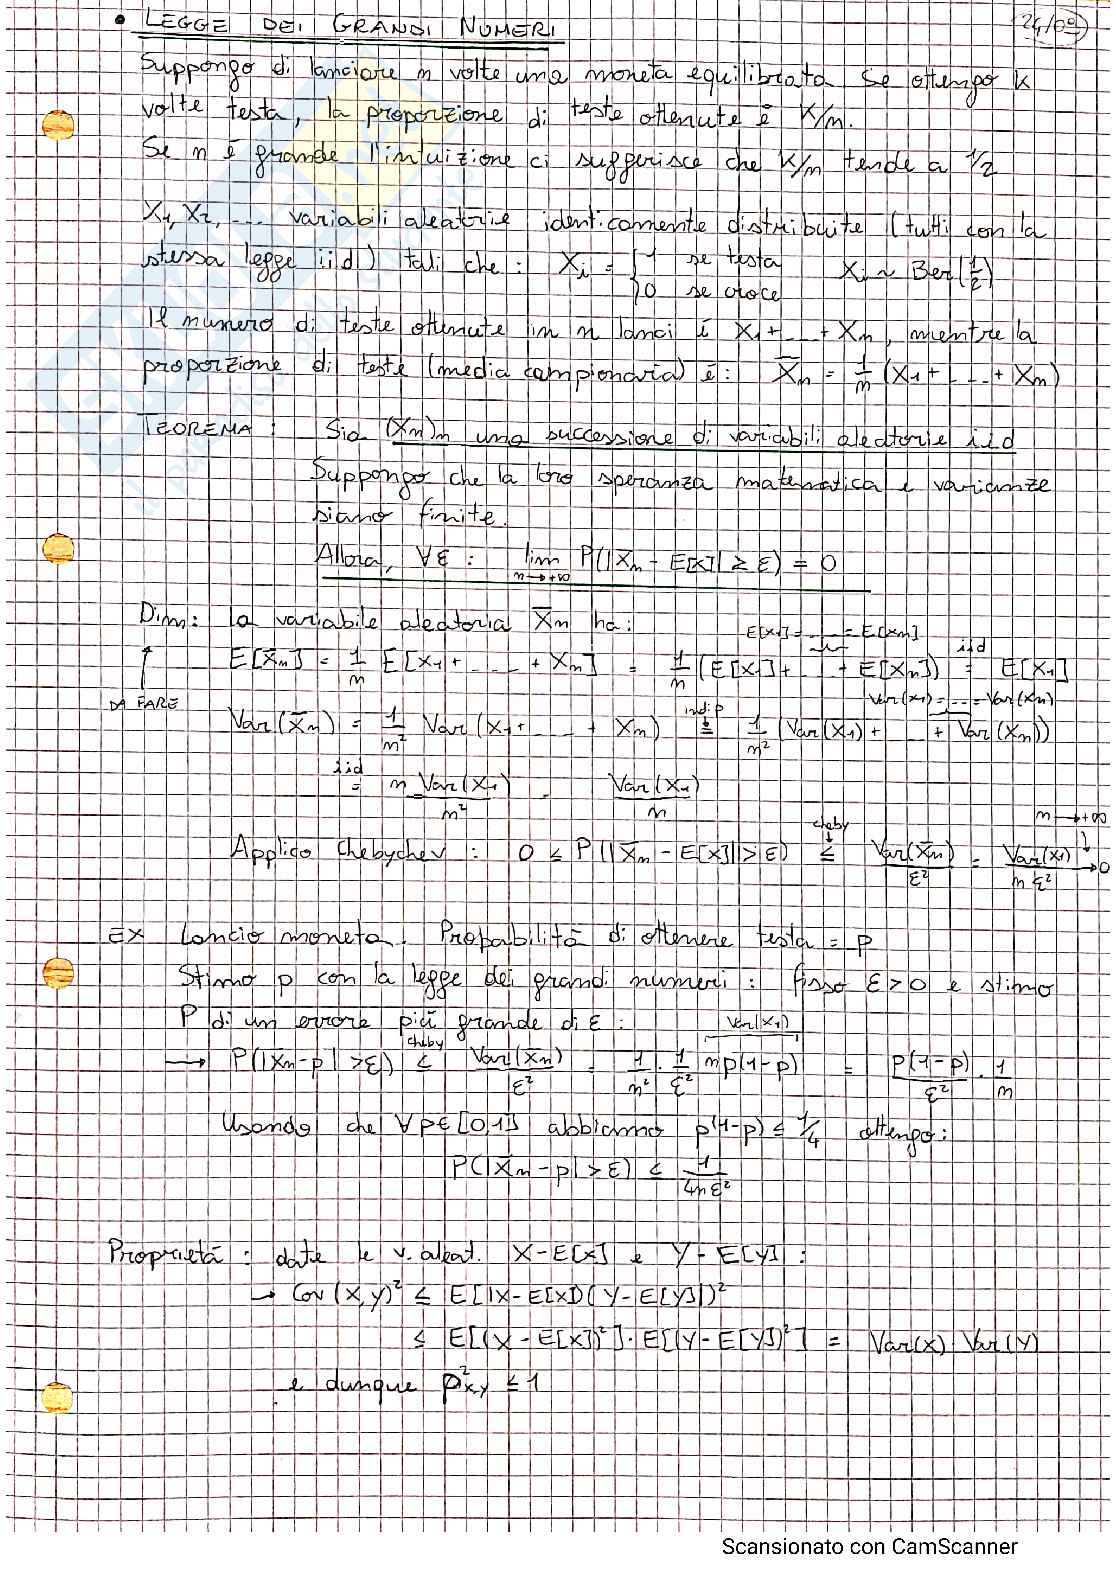 • LEGGE DEI GRANDI NUMERI
24/09
Suppongo di lanciare n volte una moneta equilibrata. Se ottengo K
volte testa, la proporzione di teste ottenute è K/n.
Se n è grande l'intuizione ci suggerisce che K/n tende a 1/2
X₁, X₂, ... variabili aleatorie identicamente distribuite (tutti con la
stessa legge iid) tali che : Xi = { 1 se testa Xi ~ Ber(1/2)
0 se croce
Il numero di teste ottenute in n lanci è X₁ + ... + Xn, mentre la
proporzione di teste (media campionaria) è: X̄n = 1/n (X₁ + ... + Xn)
TEOREMA : Sia (Xn)n una successione di variabili aleatorie iid
Suppongo che la loro speranza matematica e varianze
siano finite.
Allora, ∀ε : lim n→+∞ P(|X̄n - E[X]| ≥ ε) = 0
Dim: la variabile aleatoria X̄n ha:
E[X₁] = ... = E[Xn]
E[X̄n] = 1/n E[X₁ + ... + Xn] = 1/n (E[X₁] + ... + E[Xn]) iid = E[X₁]
DA FARE
Var(X₁) = ... = Var(Xn)
Var(X̄n) = 1/n² Var(X₁ + ... + Xn) indip = 1/n² (Var(X₁) + ... + Var(Xn))
iid = n Var(X₁)/n² = Var(X₁)/n
Applico Chebychev : 0 ≤ P(|X̄n - E[X]| > ε) cheby ≤ Var(X̄n)/ε² = Var(X₁)/nε² n→+∞ → 0
EX Lancio moneta. Probabilità di ottenere testa = p
Stimo p con la legge dei grandi numeri : fisso ε > 0 e stimo
P di un errore più grande di ε :
Var(X₁)
→ P(|X̄n - p| > ε) cheby ≤ Var(X̄n)/ε² = 1/n² · 1/ε² np(1-p) = p(1-p)/ε² · 1/n
Usando che ∀p∈[0,1] abbiamo p(1-p) ≤ 1/4 ottengo:
P(|X̄n - p| > ε) ≤ 1/4nε²
Proprietà : date le v.aleat. X - E[X] e Y - E[Y] :
→ Cov(X,Y)² ≤ E[|X - E[X])(Y - E[Y]|)²
≤ E[(X - E[X])²] · E[(Y - E[Y])²] = Var(X) · Var(Y)
e dunque ρ²x,y ≤ 1
Scansionato con CamScanner